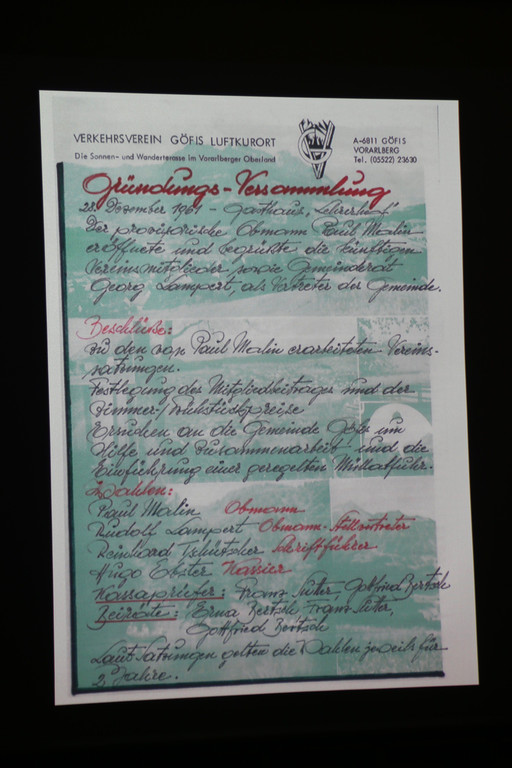 VERKEHRSVEREIN GÖFIS LUFTKURORT
Die Sonnen- und Wanderterasse im Vorarlberger Oberland
A-6811 GÖFIS
VORARLBERG
Tel. (05522) 23630
Gründungs-Versammlung
28. Dezember 1961 - Gasthaus "Lehrerhof"
Der provisorische Obmann Paul Malin
eröffnete und begrüßte die künftigen
Vereinsmitglieder sowie Gemeinderat
Georg Lampert, als Vertreter der Gemeinde.
Beschlüße:
zu den von Paul Malin erarbeiteten Vereins-
satzungen.
Festlegung des Mitgliedbeitrages und der
Zimmer-/Frühstückspreise
Ersuchen an die Gemeinde Göfis um
Hilfe und Zusammenarbeit und die
Einführung einer geregelten Müllabfuhr.
Wahlen:
Paul Malin Obmann
Rudolf Lampert Obmann-Stellvertreter
Reinhard Schriftführer
Hugo Ebster Kassier
Kassaprüfer: Franz Sutter, Gottfried Bertsch
Beiräte: Erna Bertsch, Franz Sutter,
Gottfried Bertsch
Laut Satzungen gelten die Wahlen jeweils für
2 Jahre.